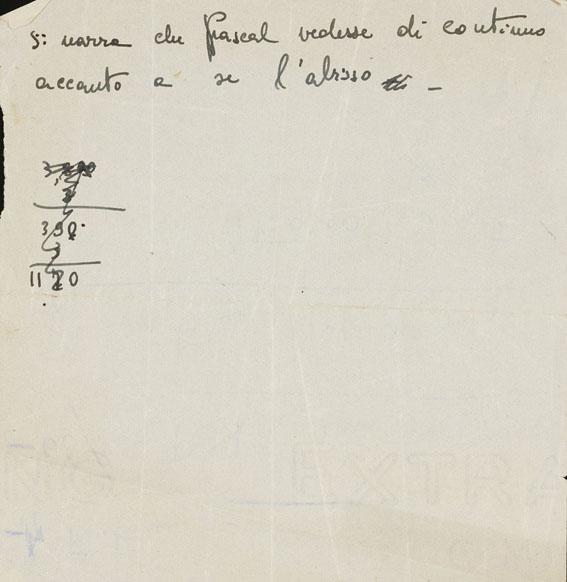 Si narra che Pascal vedesse di continuo
accanto a se l'abisso –
3
390
3
1120
EXTRA